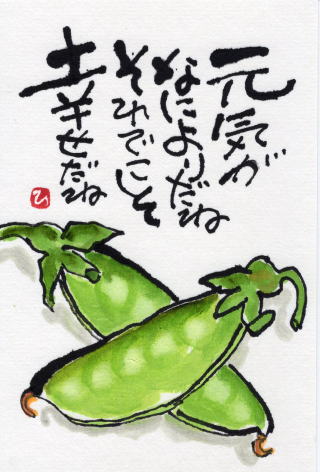 元気が
なによりだね
それでこそ
幸せだね
ひ